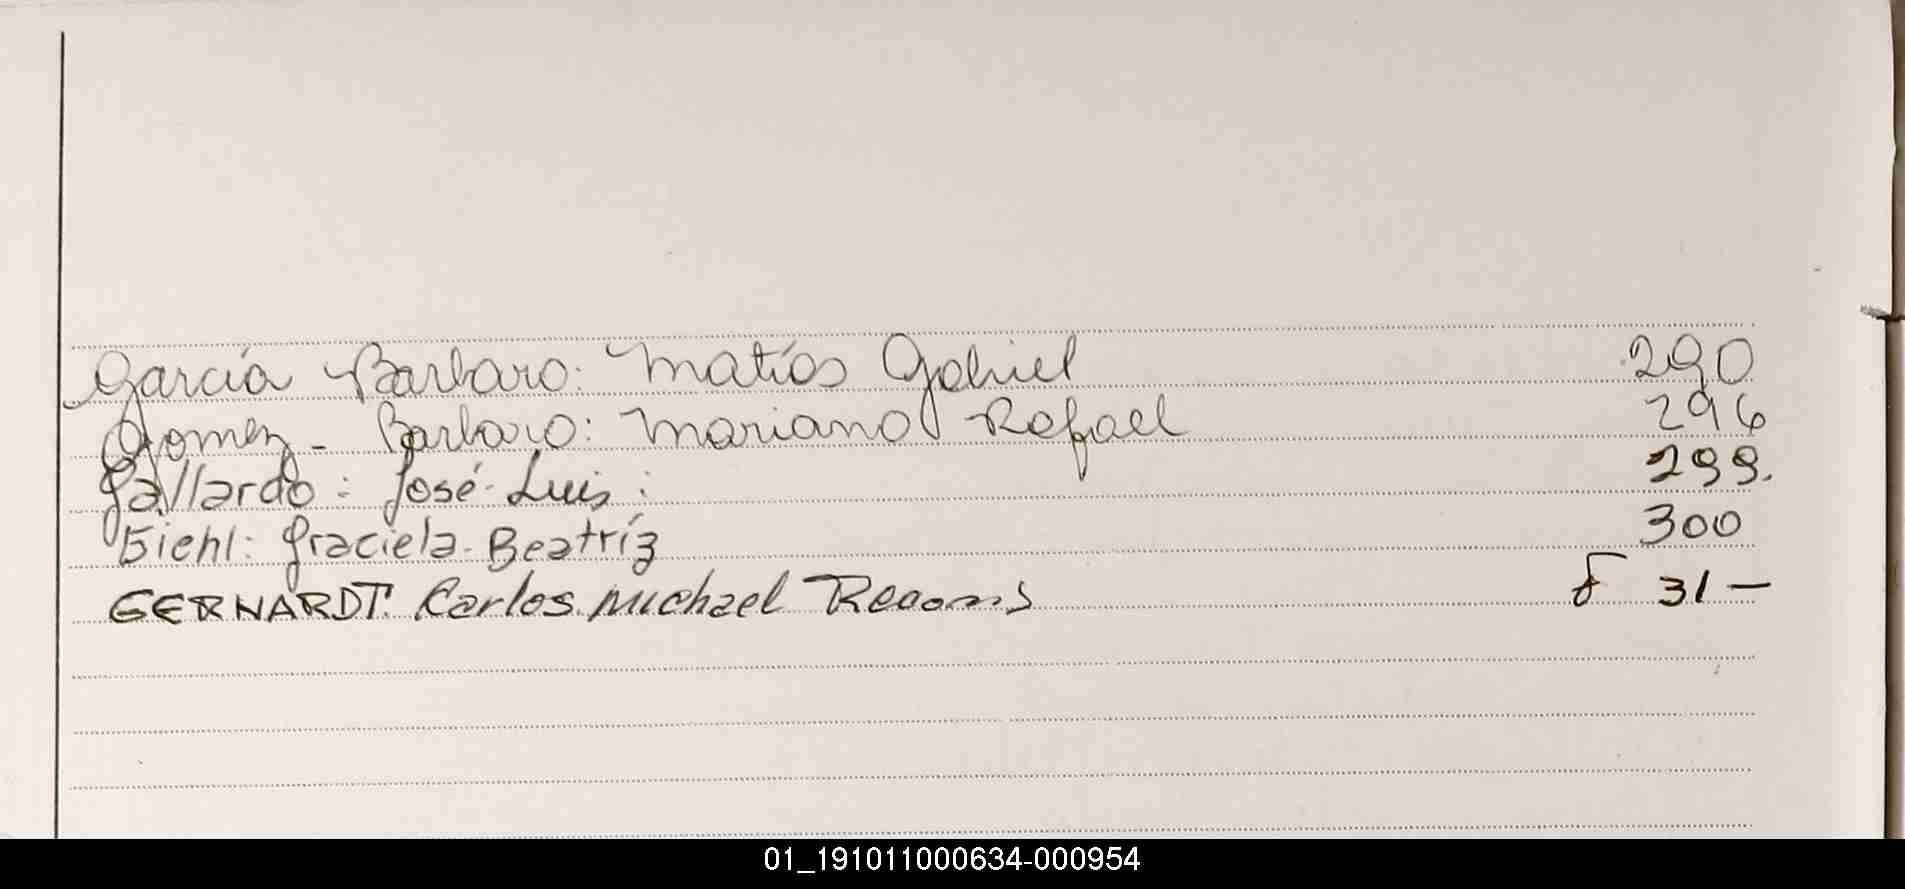 García Barbaro: Matías Gabriel 290
Gomez - Barbaro: Mariano Rafael 296
Gallardo: José Luis: 299.
Giehl: Graciela Beatríz 300
GERHARDT. Carlos Michael 31 -
01_191011000634-000954